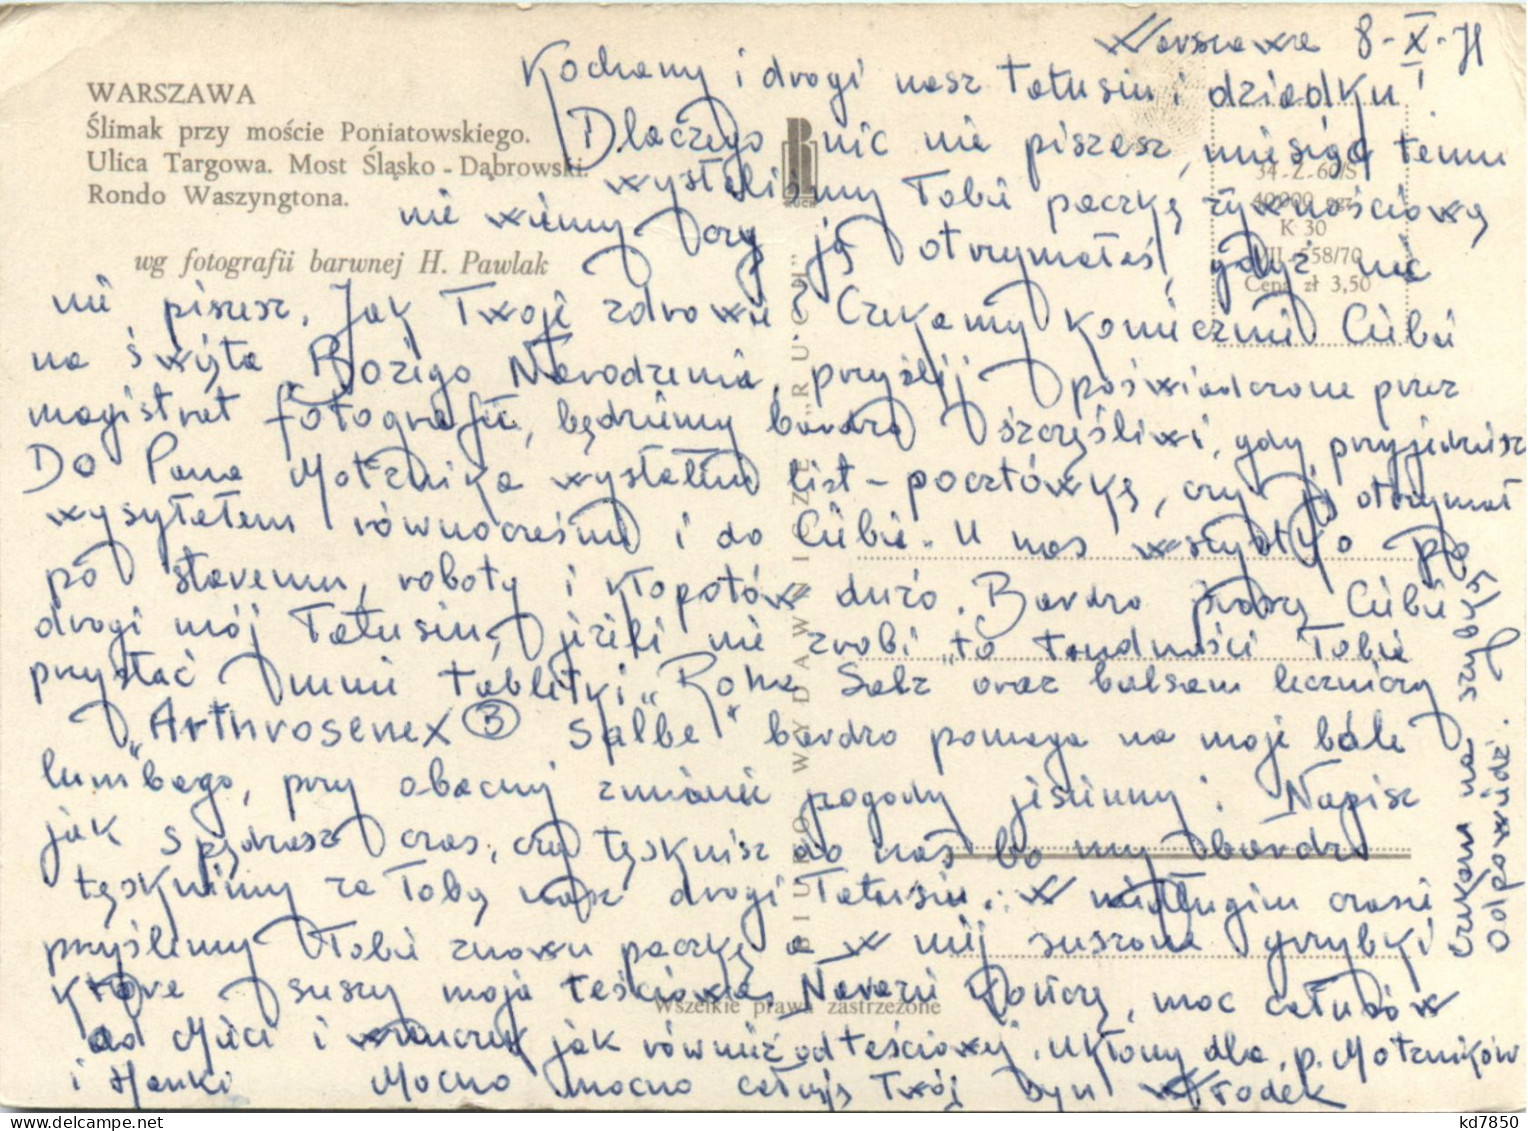 WARSZAWA
Ślimak przy moście Poniatowskiego.
Ulica Targowa. Most Śląsko-Dąbrowski.
Rondo Waszyngtona.
wg fotografii barwnej H. Pawlak
RUCH
BIURO WYDAWNICZE "RUCH"
34-Z-60/S
40000 egz.
K 30
VII-558/70
Cena zł 3,50
Wszelkie prawa zastrzeżone
Warszawa 8-X-71
Kochany i drogi nasz Tatusiu i dziadku!
Dlaczego nic nie piszesz, miesiąc temu
wysłaliśmy Tobie paczkę żywnościową
nie wiemy czy ją otrzymałeś, gdyż nic
nie piszesz. Jak Twoje zdrowie? Czekamy koniecznie Ciebie
na święta Bożego Narodzenia, przyślij poświadczone przez
magistrat fotografie, będziemy bardzo szczęśliwi, gdy przyjedziesz
Do Pana Motznika wysłałem list-pocztówkę, czy ją otrzymał
wysyłałem równocześnie i do Ciebie. U nas wszystko po
po staremu, roboty i kłopotów dużo. Bardzo proszę Ciebie
drogi mój Tatusiu, jeżeli nie zrobi to trudności Tobie
przysłać mnie tabletki "Roha Salz oraz balsam leczniczy
"Arthrosenex ③ Salbe" bardzo pomaga na moje bóle
lumbago, przy obecnej zmianie pogody jesiennej. Napisz
jak spędzasz czas, czy tęsknisz do nas bo my bardzo
tęsknimy za Tobą nasz drogi Tatusiu. W niedługim czasie
przyślemy Tobie znowu paczkę a w niej suszone grzybki
które suszy moja teściowa. Narazie kończę, moc całusów
od Mieci i wnuczek jak również od teściowej. Ukłony dla p. Motzników
i Hanki Mocno mocno całuję Twój syn Włodek
czekam na szybką
odpowiedź.
kd7850